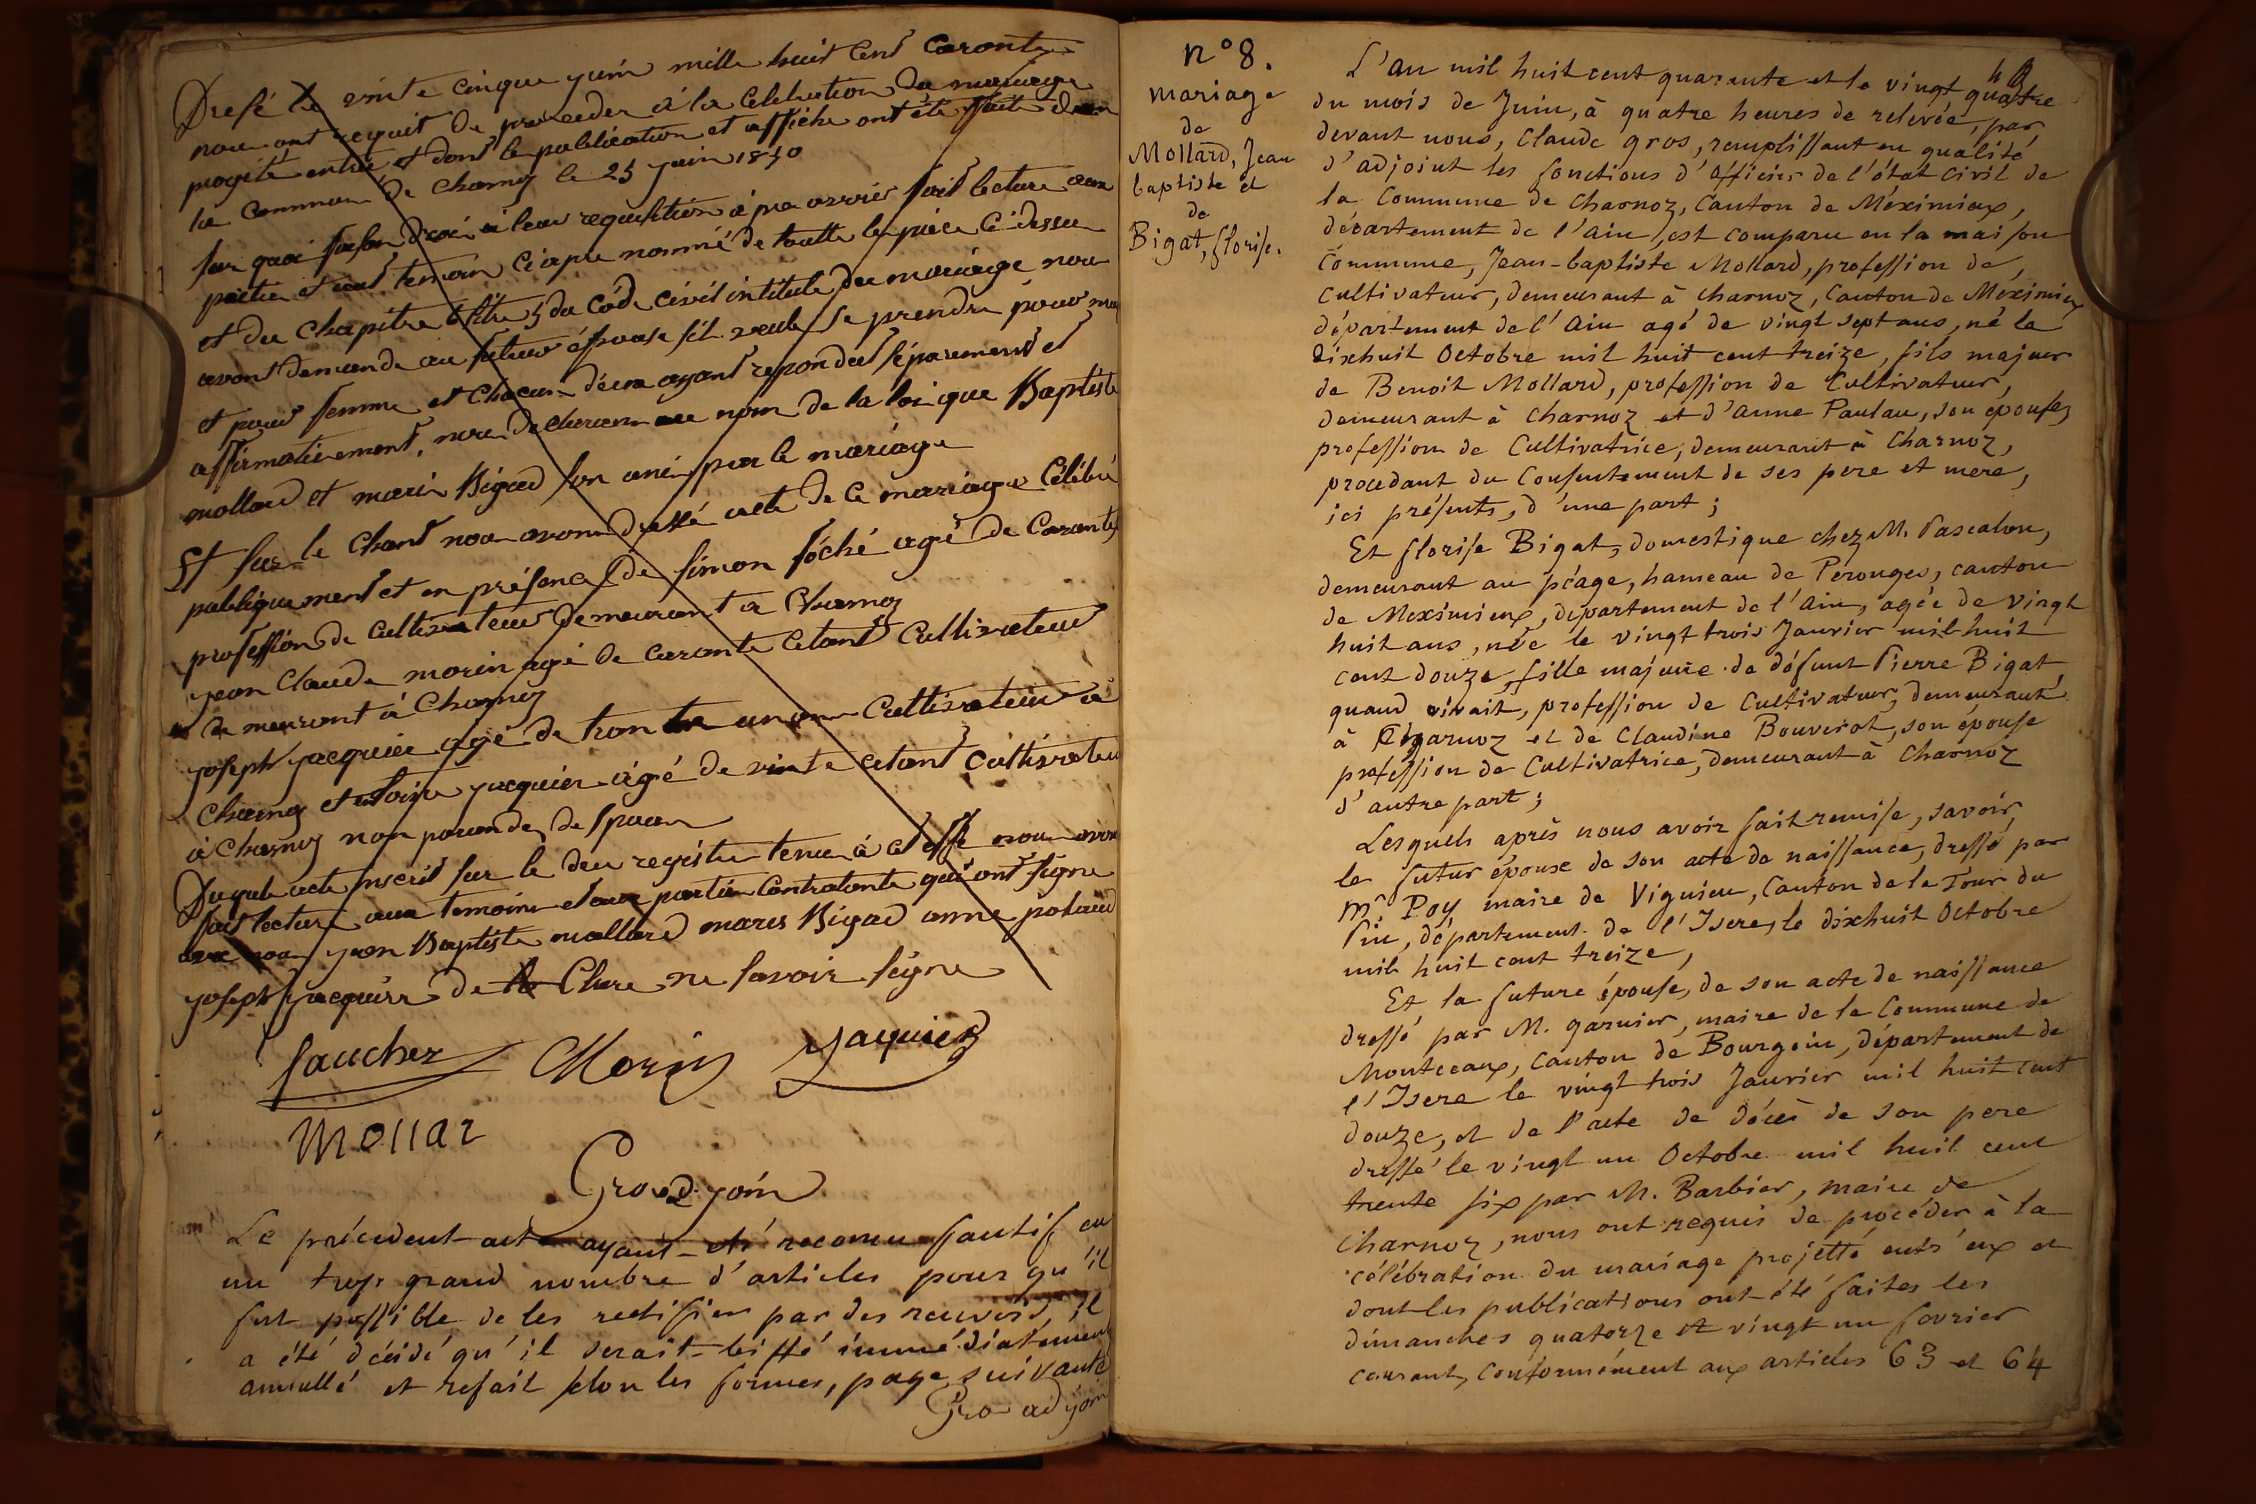 Dresé le vinte cinque yuin mille huit cent caronte
nou ont requit de proceder a la celebration du mariage
progité entre et dont la publication et affiche ont été faite dan
la commune de Charnoz le 25 yuin 1840
sur quoi fesan droi à leur requisition apre avoir fait lecture aux
partie et aux temoin ci apre nommé de toutte le pièce ci dessu
et du chapitre 6 titre 5 du code civil intitulé du mariage nou
avont demande au futur épouse s'il veule se prendre pour mari
et pour femme et chacun d'eux ayant repondu séparement et
affirmativement, nou declaron au nom de la loi que Baptiste
mollard et marie Bigad son uni par le mariage
Et sur le chant nou avon dressé acte de ce mariage célébré
publiquement et en présence de simon foché agé de caronte
profession de cultivateur demeurant a Charnoz
yean Claude morin agé de caronte cetant cultivateur
demeurant à Charnoz
yoseph yacquier agé de tronte un an cultivateur a
Charnoz et antoine yacquier agé de vinte cetant cultivateu
à Charnoz non parande de spoux
Duquel acte inscrit sur le deu registre tenu à cet effe nou avon
fait lecture aux temoin et aux partie contratante qui ont signe
avec nou yean Baptiste mollard marie Bigad anne polaud
yoseph yacquier declare ne savoir signe
fauchez Morin yaquier
Mollar
Gros ad yoin
Le précedent acte ayant été reconnu fautif en
un trop grand nombre d'articles pour qu'il
fut possible de les rectifier par des renvois, il
a été décidé qu'il serait biffé immédiatement
annullé et refait selon les formes, page suivante
Gro ad yoin
n° 8.
mariage
de
Mollard, Jean
baptiste et
de
Bigat, florise.
L'an mil huit cent quarante et le vingt quatre
du mois de Juin, à quatre heures de relevée, par
devant nous, Claude gros, remplissant en qualité
d'adjoint les fonctions d'officier de l'état civil de
la Commune de Charnoz, Canton de Méximieux,
département de l'ain, est comparu en la maison
commune, Jean-baptiste Mollard, profession de
cultivateur, demeurant à charnoz, canton de Méximieux
département de l'ain agé de vingt sept ans, né le
dixhuit Octobre mil huit cent treize, fils majeur
de Benoit Mollard, profession de Cultivateur,
demeurant à Charnoz et d'anne Paulau, son épouse,
profession de Cultivatrice, demeurant à Charnoz,
procedant du Consentement de ses pere et mere,
ici présents, d'une part;
Et florise Bigat, domestique chez M. Pascalon,
demeurant au péage, hameau de Perouges, canton
de Meximieux, département de l'ain, agée de vingt
huit ans, née le vingt trois Janvier mil huit
cent douze, fille majeure de défunt Pierre Bigat
quand vivait, profession de Cultivateur, demeurant
à Charnoz et de Claudine Bouverot, son épouse
profession de Cultivatrice, demeurant à Charnoz
d'autre part;
Lesquels après nous avoir fait remise, savoir,
le futur époux de son acte de naissance, dressé par
Mr. Poy maire de Vignieu, Canton de la Tour du
Pin, département de l'Isere, le dixhuit Octobre
mil huit cent treize,
Et la future épouse, de son acte de naissance
dressé par M. garnier, maire de la Commune de
Montceaux, canton de Bourgoin, département de
l'Isere le vingt trois Janvier mil huit cent
douze, et de l'acte de décès de son pere
dressé le vingt un Octobre mil huit cent
trente six par M. Barbier, maire de
Charnoz, nous ont requis de procéder à la
célébration du mariage projetté entr'eux et
dont les publications ont été faites les
dimanches quatorze et vingt un fevrier
courant, conformément aux articles 63 et 64